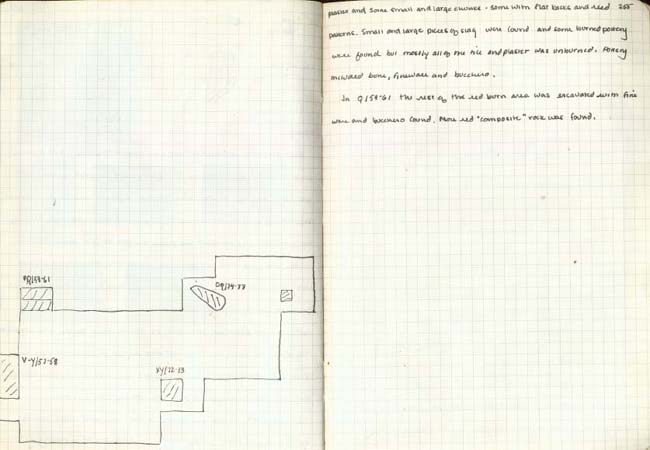 plaster and some small and large chunks - some with flat backs and reed 255
patterns. Small and large pieces of slag were found and some burned pottery
were found but mostly all of the tile and plaster was unburned. Pottery
included bone, fineware and bucchero.
In Q/59-61 the rest of the red burn area was excavated with fine
ware and bucchero found. More red "composite" rock was found.
/59-61
/74-77
V-Y/57-58
XY/12-13